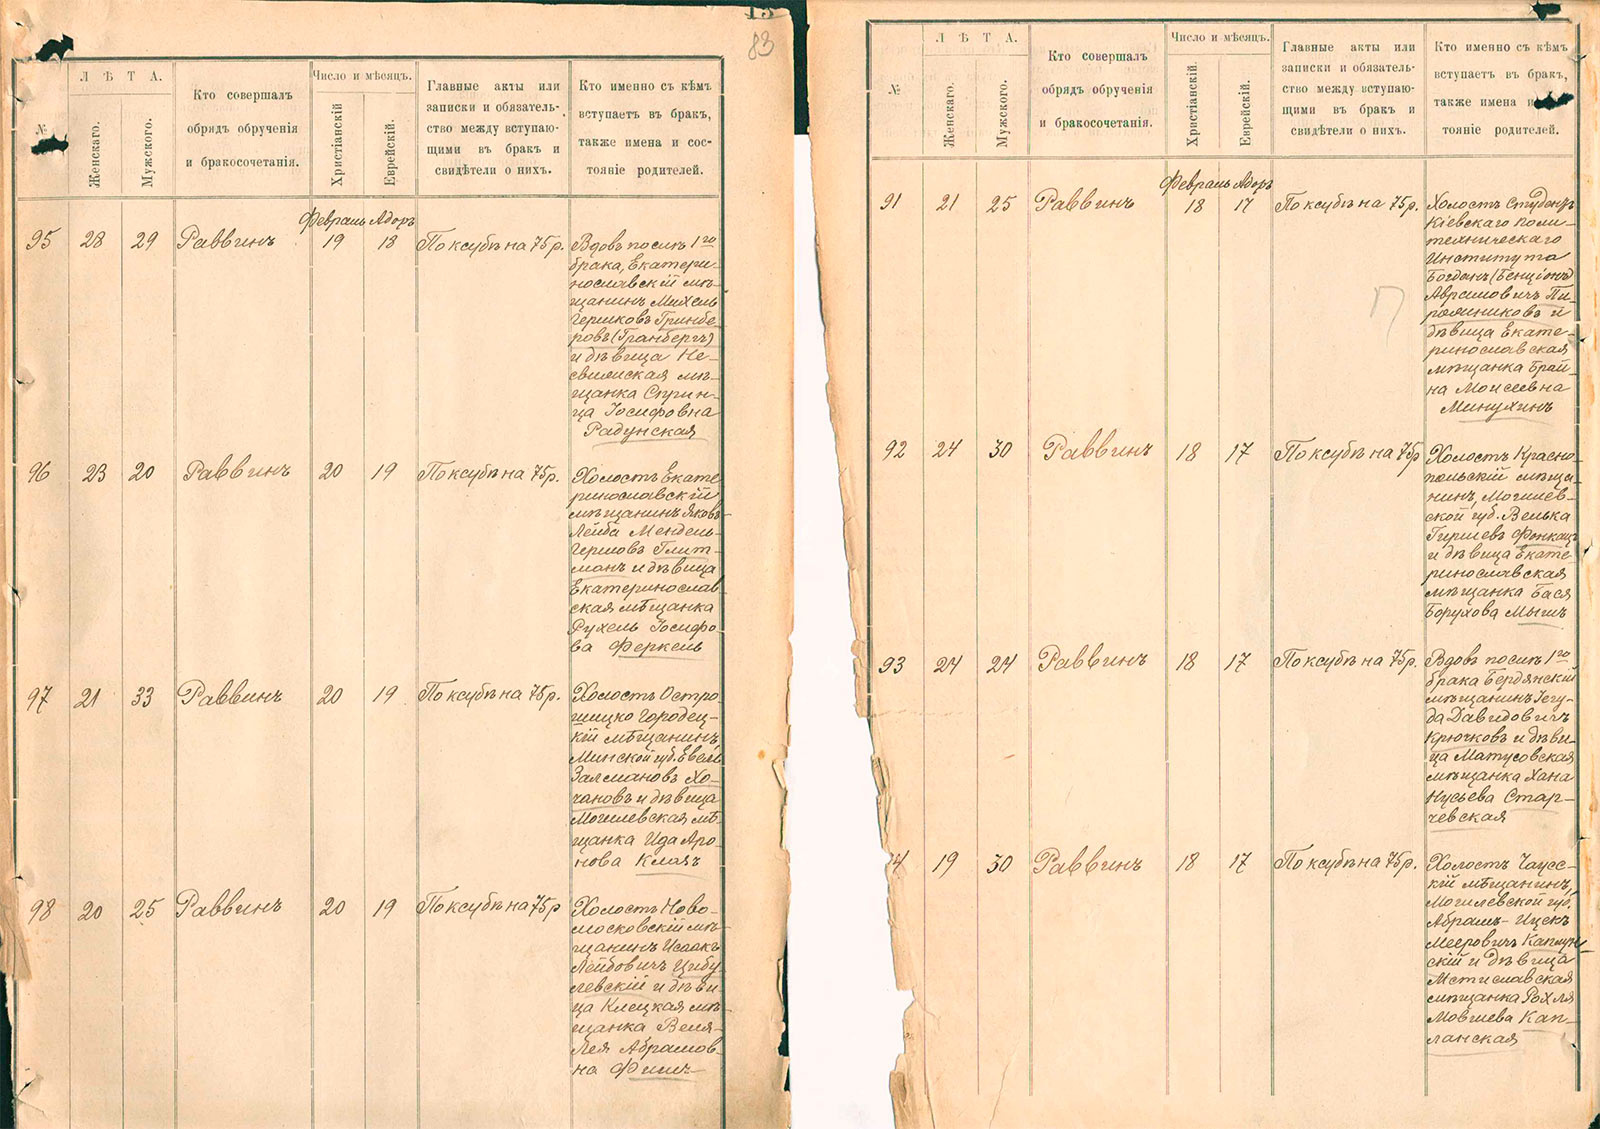 83
№
ЛѢТА.
Женскаго.
Мужского.
Кто совершалъ
обрядъ обрученія
и бракосочетанія.
Число и мѣсяцъ.
Христіанскій
Еврейскій.
Главные акты или
записки и обязатель-
ство между вступаю-
щими въ бракъ и
свидѣтели о нихъ.
Кто именно съ кѣмъ
вступаетъ въ бракъ,
также имена и сос-
тояніе родителей.
Февраль Адоръ
95 28 29 Раввинъ 19 18 По ксубѣ на 75 р.
Вдовъ послѣ 1го
брака, Екатери-
нославскій мѣ-
щанинъ Михель
Гершковъ Гринбе-
ровъ (Гранбергъ)
и дѣвица Не-
свижская мѣ-
щанка Сприн-
ца Іосифовна
Радунская
96 23 20 Раввинъ 20 19 По ксубѣ на 75 р.
Холостъ Екате
ринославскій
мѣщанинъ Яковъ
Лейба Мендель-
Гершовъ Глит-
манъ и дѣвица
Екатеринослав
ская мѣщанка
Рухель Іосифо
ва Феркель
97 21 33 Раввинъ 20 19 По ксубѣ на 75 р.
Холостъ Остро
шицко Городец-
кій мѣщанинъ,
Минской губ. Евель
Залмановъ Хо-
чановъ и дѣвица
Могилевская мѣ-
щанка Ида Аро-
нова Клазъ
98 20 25 Раввинъ 20 19 По ксубѣ на 75 р
Холостъ Ново-
московскій мѣ-
щанинъ Исаакъ
Лейбовичъ Цибу
левскій и дѣви-
ца Клецкая мѣ-
щанка Веля-
Лея Абрамов-
на Фишъ
№
ЛѢТА.
Женскаго.
Мужского.
Кто совершалъ
обрядъ обрученія
и бракосочетанія.
Число и мѣсяцъ.
Христіанскій.
Еврейскій.
Главные акты или
записки и обязатель-
ство между вступаю-
щими въ бракъ и
свидѣтели о нихъ.
Кто именно съ кѣмъ
вступаетъ въ бракъ,
также имена и
тояніе родителей.
Февраль Адоръ
91 21 25 Раввинъ 18 17 По ксубѣ на 75 р.
Холостъ Студентъ
Кіевскаго Поли-
техническаго
Института
Богданъ (Бенціонъ)
Аврамовичъ Пи-
рожниковъ и
дѣвица Екате-
ринославская
мѣщанка Брай-
на Моисеевна
Минухинъ
92 24 30 Раввинъ 18 17 По ксубѣ на 75 р
Холостъ Красно-
польскій мѣща-
нинъ, Могилев-
ской губ. Велька
Гиршевъ Фонкацъ
и дѣвица Екате-
ринославская
мѣщанка Бася
Борухова Мышъ
93 24 24 Раввинъ 18 17 По ксубѣ на 75 р.
Вдовъ послѣ 1го
брака Бердянскій
мѣщанинъ Іегу-
да Давидовичъ
Крючковъ и дѣви-
ца Матусовская
мѣщанка Хана
Нусьева Стар-
чевская
4 19 30 Раввинъ 18 17 По ксубѣ на 75 р.
Холостъ Чаусс-
кій мѣщанинъ,
Могилевской губ.
Абрамъ-Ицекъ
Мееровичъ Каплун-
скій и дѣвица
Мстиславская
мѣщанка Рохля
Мовшева Кап-
ланская